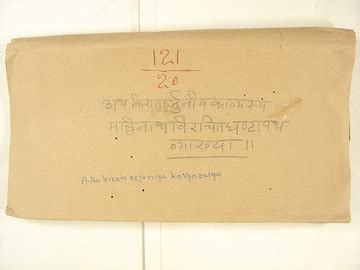 121
20
अथ किरातार्जुनीय काव्यस्य
मल्लिनाथ विरचित घण्टापथ
व्याख्या ॥
Atha kiratarjuniya kavyarasya